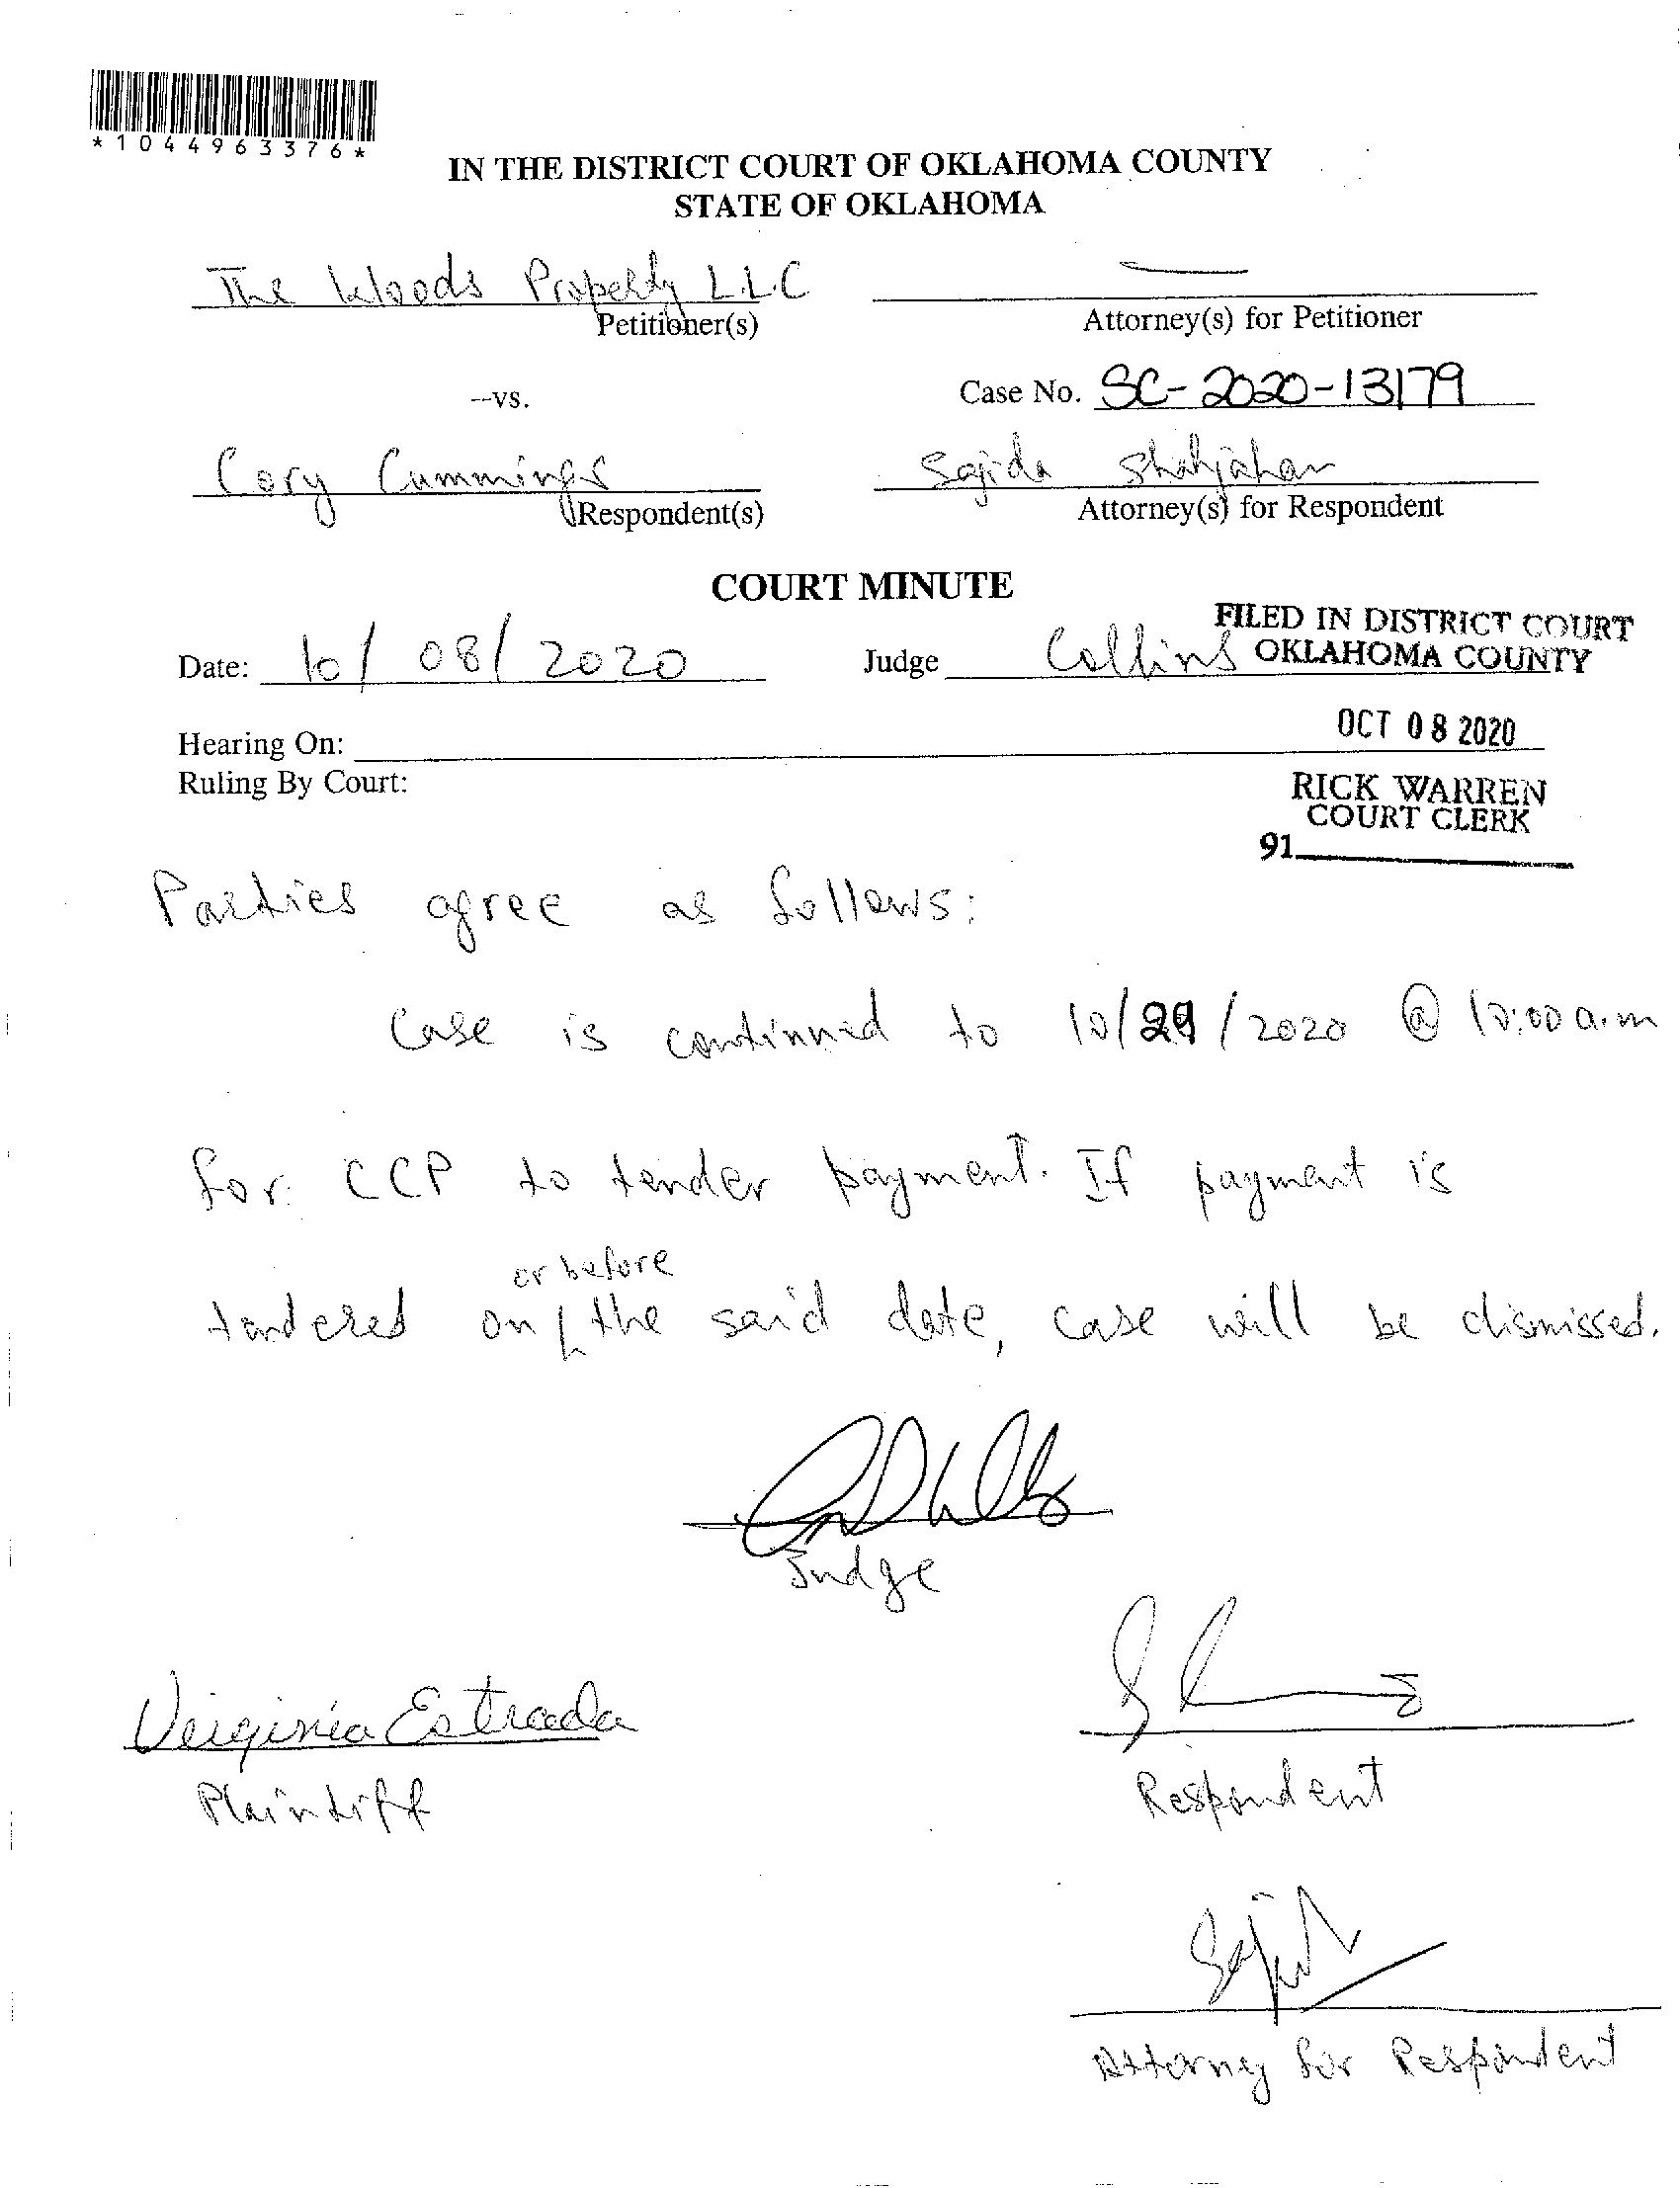 *1044963376*
IN THE DISTRICT COURT OF OKLAHOMA COUNTY
STATE OF OKLAHOMA
The Woods Property L.L.C
Petitioner(s)
Attorney(s) for Petitioner
--vs.
Case No. SC-2020-13179
Cory Cummings
Respondent(s)
Sajida Shahjahan
Attorney(s) for Respondent
COURT MINUTE
FILED IN DISTRICT COURT
OKLAHOMA COUNTY
Date: 10/08/2020
Judge Collins
OCT 08 2020
Hearing On:
Ruling By Court:
RICK WARREN
COURT CLERK
91
Parties agree as follows:
Case is continued to 10/29/2020 @ 10:00 a.m
for CCP to tender payment. If payment is
or before
tendered on the said date, case will be dismissed.
Judge
Virginia Estrada
Plaintiff
Respondent
Attorney for Respondent